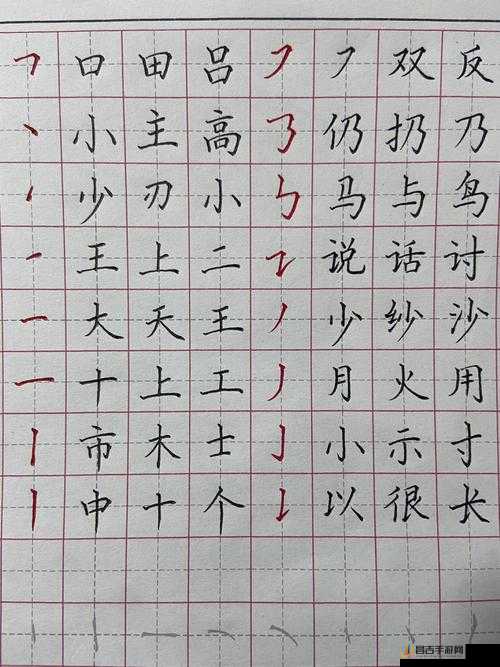 ㇕ 口 田 吕 ㇇ ㇇ 双 反
丶 小 主 高 ㇡ 仍 扔 乃
丶 少 刃 小 ㇉ 马 与 鸟
一 王 上 二 ㇊ 说 话 讨
一 大 天 王 丿 少 纱 沙
一 十 上 工 丿 月 火 用
丨 市 木 士 亅 小 示 寸
丨 申 十 个 𠄌 以 很 长
昌吉手游网